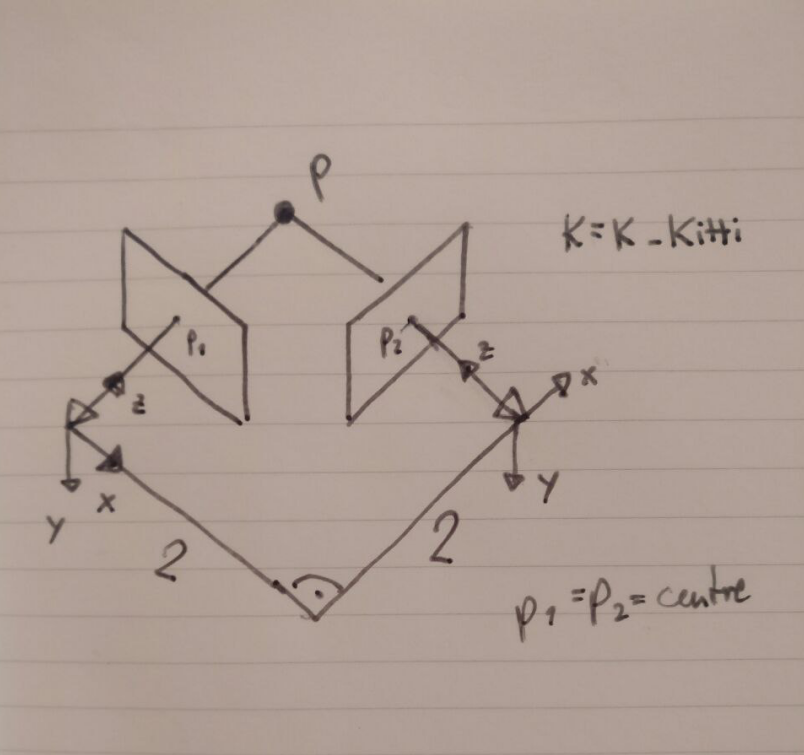 P
K = K - Kitti
P1
P2
z
z
x
x
y
y
2
2
P1 = P2 = centre